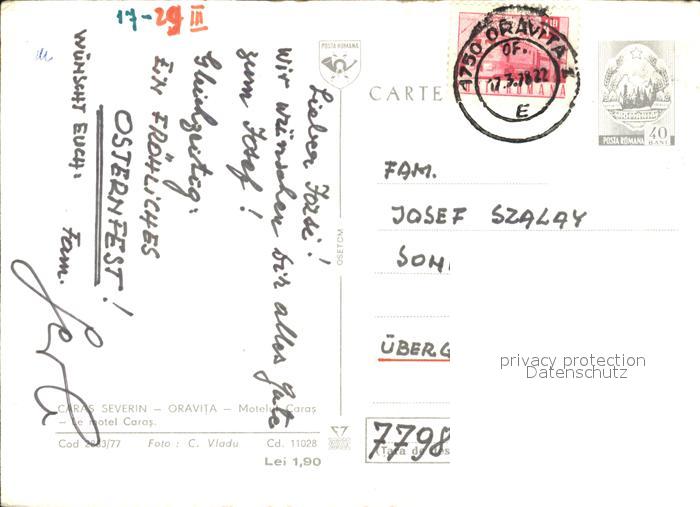 17-29 III
Lieber Jozsi!
Wir wünschen dir alles Gute
zum Josef!
Gleichzeitig:
EIN FRÖHLICHES
OSTERNFEST!
WÜNSCHT EUCH:
Fam.
POSTA ROMANA
CARTE
4750 ORAVIȚA 1
OF.
17.3.78 22
E
ROMANA
POSTA ROMANA 40
BANI
FAM.
JOSEF SZALAY
ÜBERG
7798
privacy protection
Datenschutz
OSETCM
CARAȘ SEVERIN — ORAVIȚA — Motelul Caraș
— Le motel Caraș.
Foto : C. Vladu Cd. 11028
Lei 1,90
77